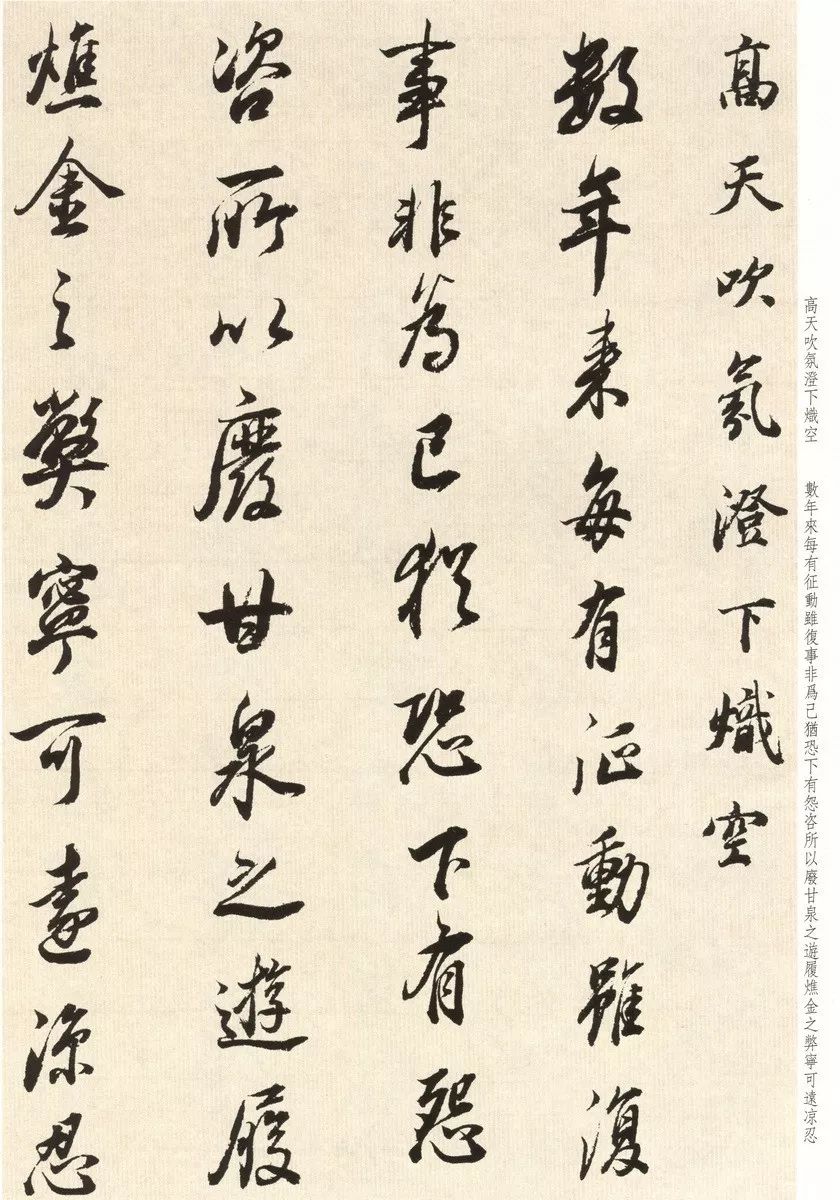 高天吹氛澄下熾空
數年來每有征動雖復
事非為己猶恐下有怨
咨所以廢甘泉之遊履
燋金之弊寧可遠涼忍
高天吹氛澄下熾空 數年來每有征動雖復事非爲己猶恐下有怨咨所以廢甘泉之遊履燋金之弊寧可遠凉忍